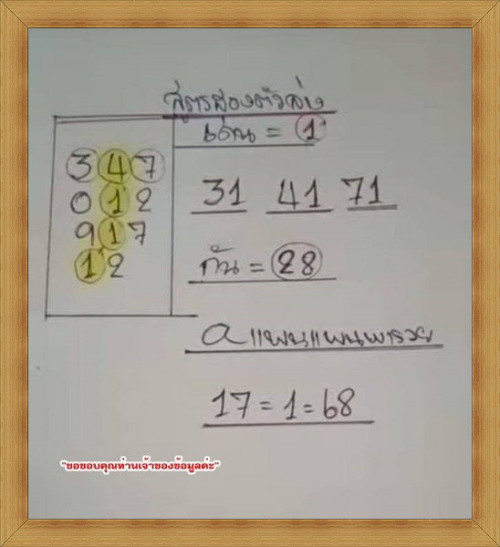 สูตรสองตัวล่าง
เด่น = 1
347
012
917
12
31 41 71
กัน = 28
17 = 1 = 68
"ขอขอบคุณท่านเจ้าของข้อมูลค่ะ"